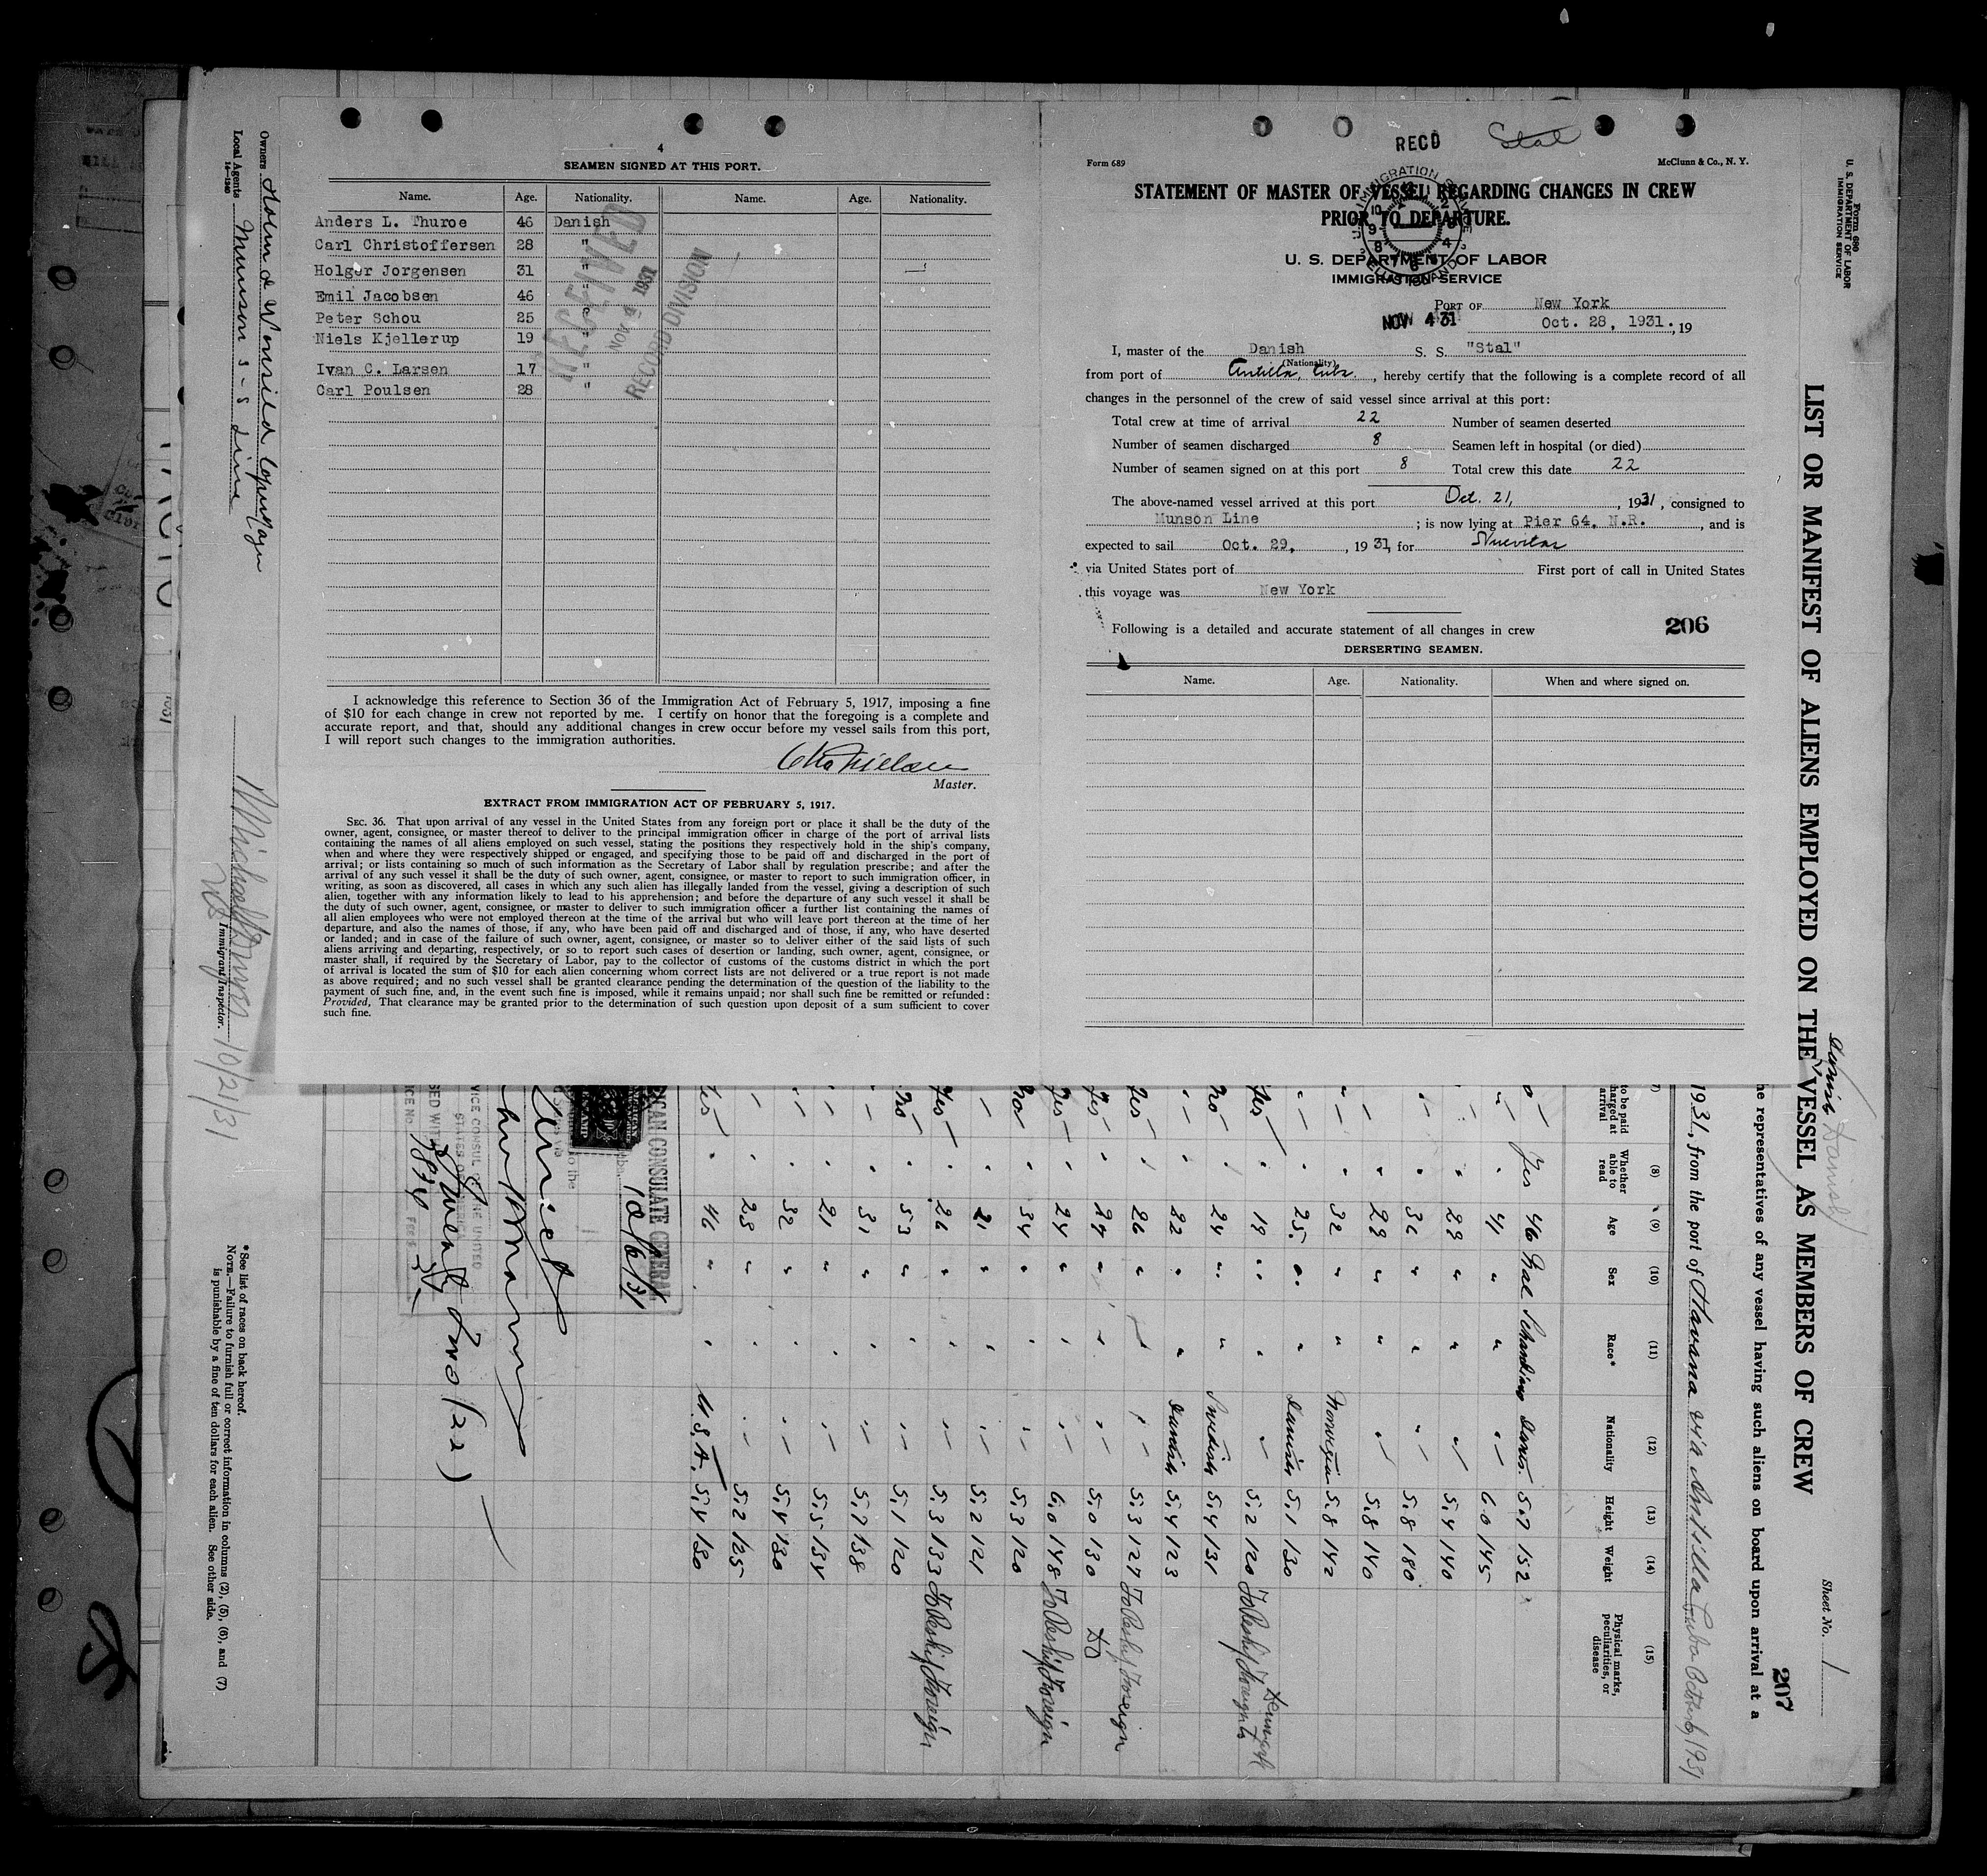 4
SEAMEN SIGNED AT THIS PORT.
Name. Age. Nationality. Name. Age. Nationality.
Anders L. Thuroe 46 Danish
Carl Christoffersen 28 "
Holger Jorgensen 31 "
Emil Jacobsen 46 "
Peter Schou 25 "
Niels Kjellerup 19 "
Ivan C. Larsen 17 "
Carl Poulsen 28 "
RECEIVED
NOV 9 1931
RECORD DIVISION
I acknowledge this reference to Section 36 of the Immigration Act of February 5, 1917, imposing a fine
of $10 for each change in crew not reported by me. I certify on honor that the foregoing is a complete and
accurate report, and that, should any additional changes in crew occur before my vessel sails from this port,
I will report such changes to the immigration authorities.
Otto Nielsen
Master.
EXTRACT FROM IMMIGRATION ACT OF FEBRUARY 5, 1917.
SEC. 36. That upon arrival of any vessel in the United States from any foreign port or place it shall be the duty of the
owner, agent, consignee, or master thereof to deliver to the principal immigration officer in charge of the port of arrival lists
containing the names of all aliens employed on such vessel, stating the positions they respectively hold in the ship's company,
when and where they were respectively shipped or engaged, and specifying those to be paid off and discharged in the port of
arrival; or lists containing so much of such information as the Secretary of Labor shall by regulation prescribe; and after the
arrival of any such vessel it shall be the duty of such owner, agent, consignee, or master to report to such immigration officer, in
writing, as soon as discovered, all cases in which any such alien has illegally landed from the vessel, giving a description of such
alien, together with any information likely to lead to his apprehension; and before the departure of any such vessel it shall be
the duty of such owner, agent, consignee, or master to deliver to such immigration officer a further list containing the names of
all alien employees who were not employed thereon at the time of the arrival but who will leave port thereon at the time of her
departure, and also the names of those, if any, who have been paid off and discharged and of those, if any, who have deserted
or landed; and in case of the failure of such owner, agent, consignee, or master so to deliver either of the said lists of such
aliens arriving and departing, respectively, or so to report such cases of desertion or landing, such owner, agent, consignee, or
master shall, if required by the Secretary of Labor, pay to the collector of customs of the customs district in which the port
of arrival is located the sum of $10 for each alien concerning whom correct lists are not delivered or a true report is not made
as above required; and no such vessel shall be granted clearance pending the determination of the question of the liability to the
payment of such fine, and, in the event such fine is imposed, while it remains unpaid; nor shall such fine be remitted or refunded:
Provided, That clearance may be granted prior to the determination of such question upon deposit of a sum sufficient to cover
such fine.
RECD Stal
Form 689 McClunn & Co., N. Y.
STATEMENT OF MASTER OF VESSEL REGARDING CHANGES IN CREW
PRIOR TO DEPARTURE.
U. S. DEPARTMENT OF LABOR
IMMIGRATION SERVICE
PORT OF New York
NOV 4 31 Oct. 28, 1931., 19
I, master of the Danish S. S. "Stal"
(Nationality)
from port of Antilla, Cuba, hereby certify that the following is a complete record of all
changes in the personnel of the crew of said vessel since arrival at this port:
Total crew at time of arrival 22 Number of seamen deserted
Number of seamen discharged 8 Seamen left in hospital (or died)
Number of seamen signed on at this port 8 Total crew this date 22
The above-named vessel arrived at this port Oct. 21, 1931, consigned to
Munson Line ; is now lying at Pier 64, N.R. , and is
expected to sail Oct. 29, , 19 31, for Nuevitas
via United States port of First port of call in United States
this voyage was New York
206
Following is a detailed and accurate statement of all changes in crew
DERSERTING SEAMEN.
Name. Age. Nationality. When and where signed on.
Form 680
U. S. DEPARTMENT OF LABOR
IMMIGRATION SERVICE
LIST OR MANIFEST OF ALIENS EMPLOYED ON THE VESSEL AS MEMBERS OF CREW
Danish
Sheet No. 1
207
the representatives of any vessel having such aliens on board upon arrival at a
1931, from the port of Havana via Antilla Cuba October 6, 1931
(7) (8) (9) (10) (11) (12) (13) (14) (15)
to be paid charged at arrival
Whether able to read
Age
Sex
Race*
Nationality
Height
Weight
Physical marks, peculiarities, or disease
Yes 46 Mal Danis. 5.7 152
" 41 " " " 6.0 145
" 29 " " " 5.4 140
" 36 " " " 5.8 180
" 29 " " " 5.8 140
" 32 " " Norwegian 5.8 142
" 25 " " Danish 5.1 130
Yes " 19 " " " 5.2 120 To Reship Foreign Denmark
No " 24 " " Swedish 5.4 131
" 22 " " Danish 5.4 123
Yes 26 " " 5.3 127 To Reship Foreign
Yes " 24 " " " 5.0 130 DO
Yes " 24 " " " 6.0 148 To Reship Foreign
No " 34 " " " 5.3 120
" 21 " " " 5.2 121
Yes " 26 " " " 5.3 133 To Reship Foreign
No " 53 " " " 5.1 120
" 31 " " " 5.7 138
" 21 " " " 5.5 134
" 32 " " " 5.4 130
" 23 " " " 5.2 125
Yes " 46 " " U.S.A. 5.4 130
RICAN CONSULATE GENERAL
10/6/31
VICE CONSUL OF THE UNITED
STATES OF AMERICA
Twenty two (22)
*See list of races on back hereof.
NOTE.—Failure to furnish full or correct information in columns (2), (5), (6), and (7)
is punishable by a fine of ten dollars for each alien. See other side.
Owners Holm & Wonsild Copenhagen
Local Agents Munson S-S Line
14—1240
Immigrant Inspector.
10/21/31